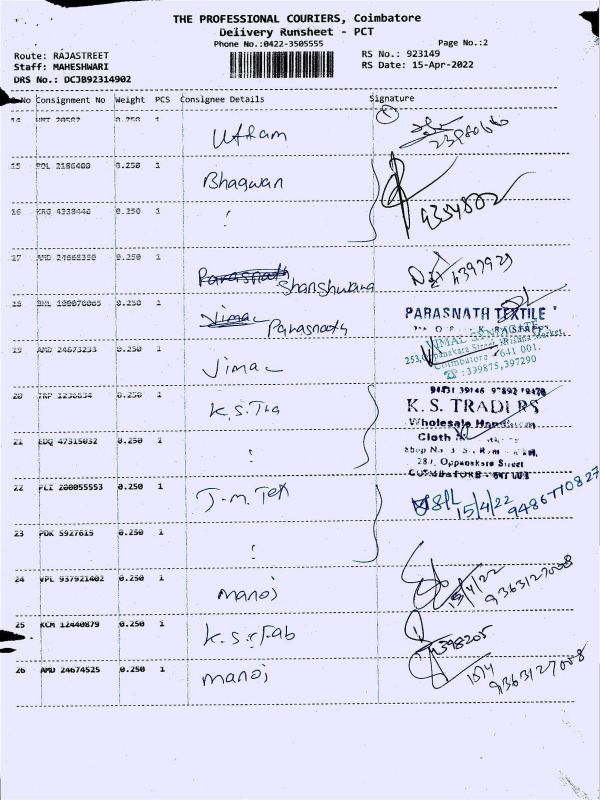 THE PROFESSIONAL COURIERS, Coimbatore
Delivery Runsheet - PCT
Phone No.:0422-3505555
Page No.:2
Route: RAJASTREET
RS No.: 923149
Staff: MAHESHWARI
RS Date: 15-Apr-2022
DRS No.: DCJB92314902
No Consignment No Weight PCS Consignee Details Signature
14 0.250 1
Uttam
15 2186400 0.250 1
Bhagwan
16 KRG 4338446 0.250 1
"
9354822
17 AMD 24668350 0.250 1
Parasnath Shanshwara
18 0.250 1
Vimal Parasnath
PARASNATH TEXTILE
19 AMD 24673233 0.250 1
Vimal
VIMAL SYNDICATE
Coimbatore 641 001.
: 339875,397290
20 1236834 0.250 1
K.S. Tra
K. S. TRADERS
Wholesale Handloom
Cloth
21 EDQ 47315032 0.250 1
"
287, Oppanakara Street
COIMBATORE - 641 001
22 200055553 0.250 1
J.M. Tex
15/4/22 9486770827
23 PDK 5927615 0.250 1
"
24 VPL 937921402 0.250 1
manoj
15/4/22
9363127008
25 KCM 12440879 0.250 1
K.S. Fab
4398205
26 AMD 24674525 0.250 1
manoj
15/4
9363127008